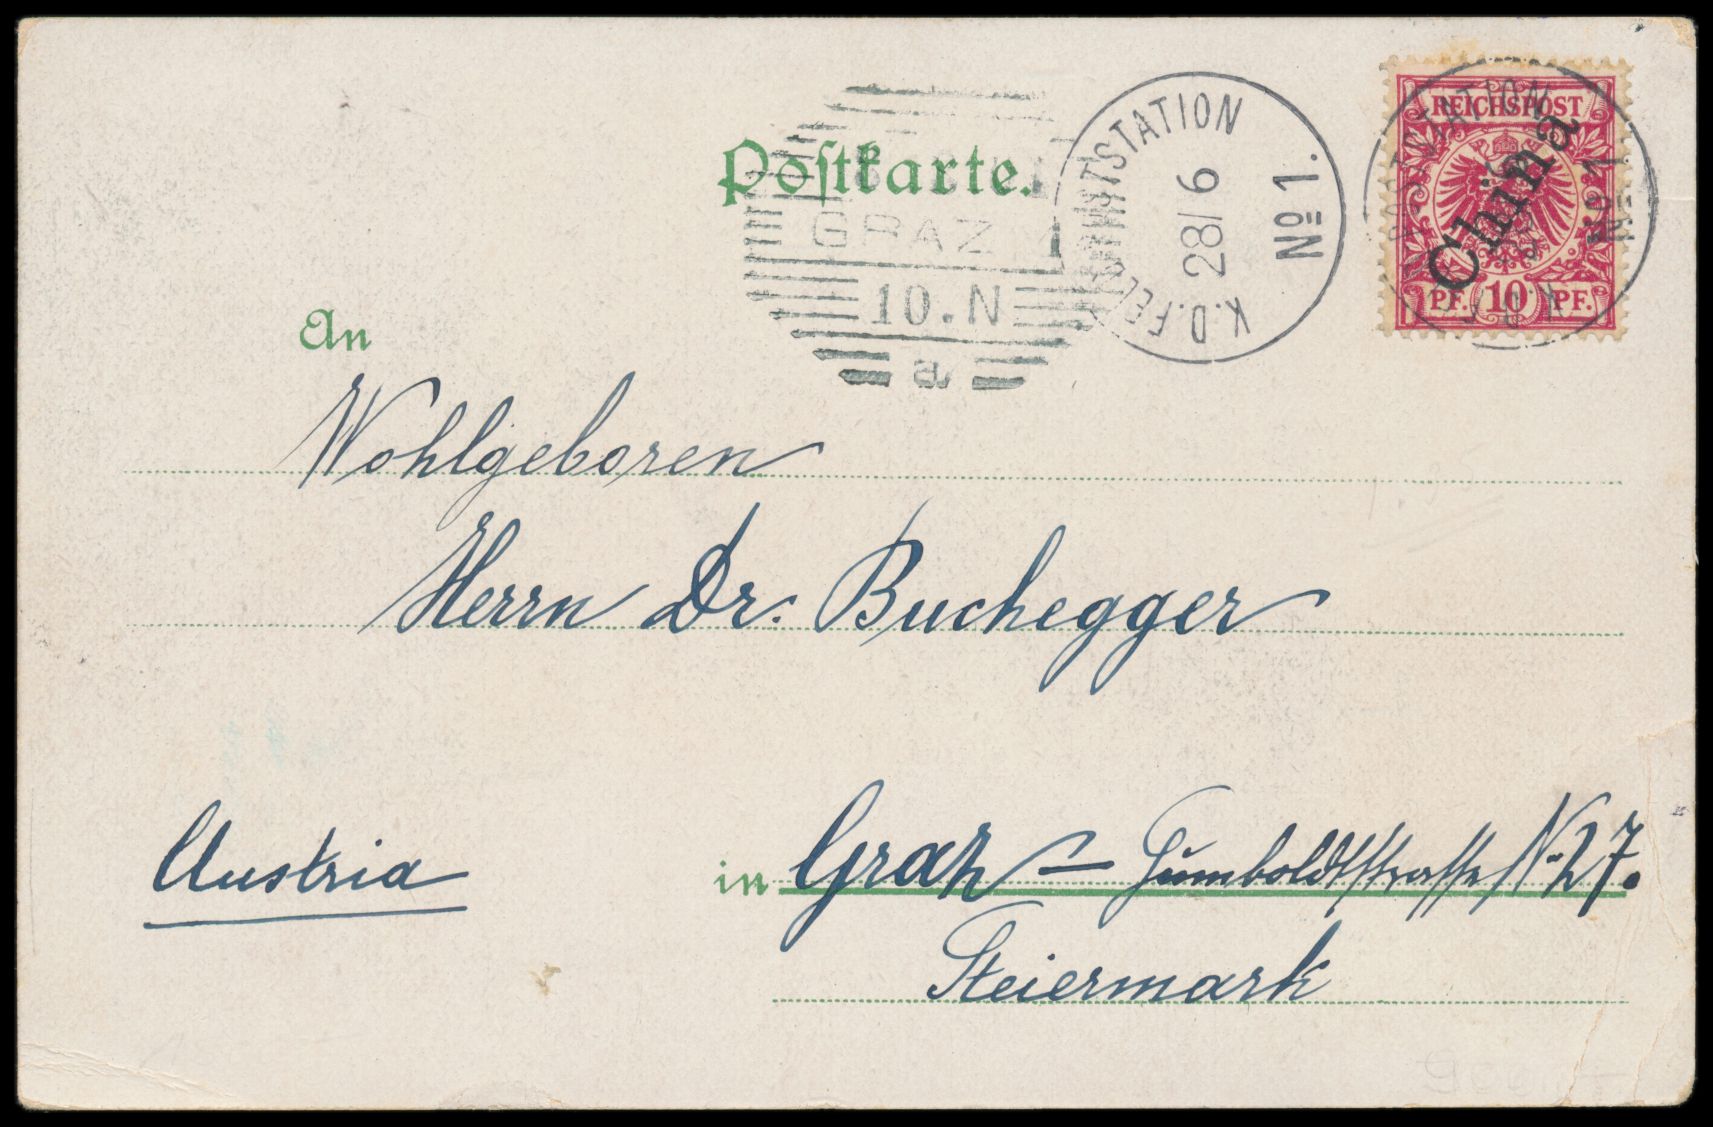 Postkarte.
GRAZ 1
10.N
K.D. FELD-POSTSTATION
28/6
No 1.
REICHSPOST
China
PF. 10 PF.
An
Wohlgeboren
Herrn Dr. Buchegger
Austria
in Graz – Humboldtstrasse N. 27.
Steiermark